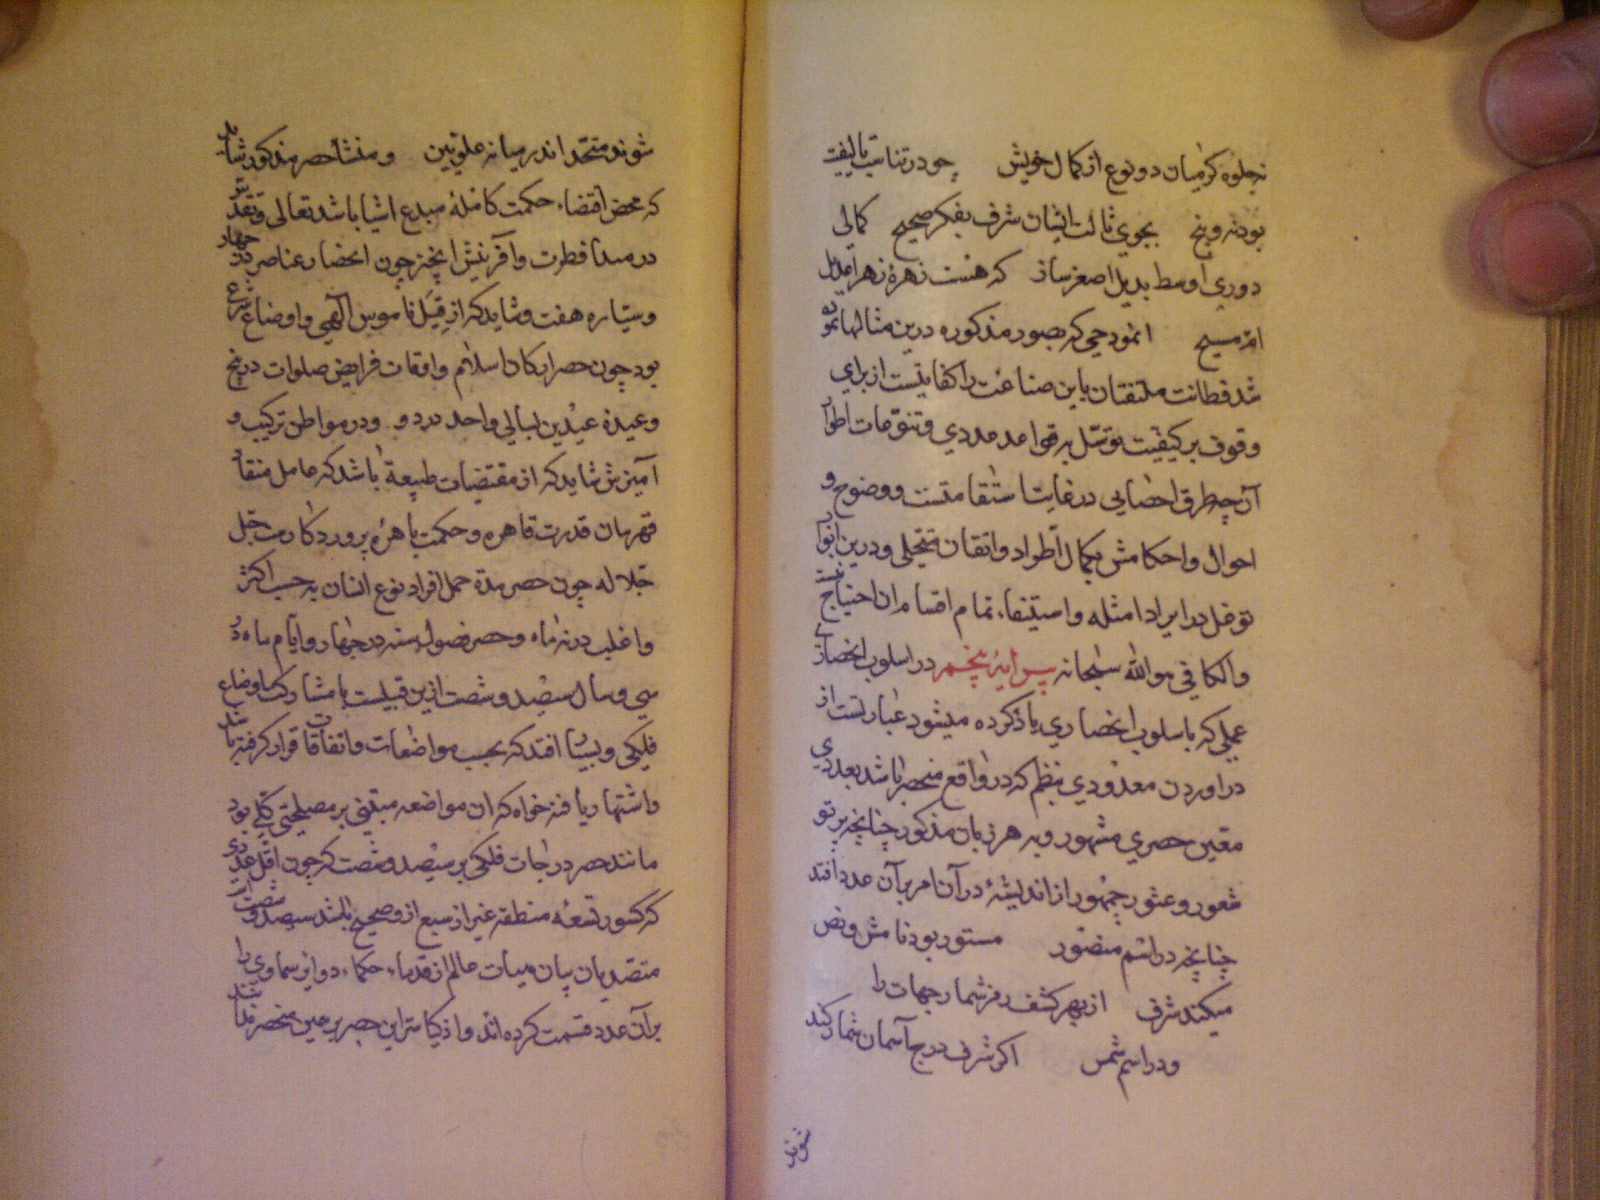 بجلوه کر میان دو نوع از کمال خویش چو در تناسب تالیفیت
بودنه و پنج بجوی ثالث ایشان شرف بفکر صحیح کمالی
دوری اوسط بدیل اصغر ساز که هست زهرهٔ زهرا بدیل
ام مسیح انموذجی که بصور مذکوره درین مثالها نموده
شد فطانت ملتفتان باین صناعت را کفایتست از برای
وقوف بر کیفیت توسّل بقواعد عددی و تنوّعات اطوار
آن چه طرق احصایی در غایت استقامتست و وضوح و
احوال و احکامش بکمال اطواد و اتقان متحلی و درین ابواب
توغل در ایراد امثله و استیفاء تمام اقسام ان احتیاج نیست
والکافی هو الله سبحانه پیرایهٔ پنجم در اسلوب انحصاری
عملی که باسلوب انحصاری یاد کرده میشود عبارتست از
در اوردن معدودی بنظم که در واقع منحصر باشد بعددی
معین حصری مشهور و بهر زبان مذکور چنانچه پرتو
شعور و عثور جمهور از اندیشهٔ در آن امر بر آن عدد افتد
چنانچه در اسم منصور مستور بود نامش و نص
میکند شرف از بهر کشف رمز شمار جهات را
و در اسم شمس اکر شرف درج آسمان شمار کند
شوند
شوند متحد اندر میانه علویین و منشأ حصر مذکور شاید
که محض اقتضاء حکمت کاملهٔ مبدع اشیا باشد تعالی و تقدس
در مبدا فطرت و آفرینش انچیز چون انحصار عناصر در چهار
و سیّاره هفت و شاید که از قِبَل ناموس الٓهی و اوضاع شرع
بود چون حصر ارکان اسلام و اوقات فرایض صلوات در پنج
و عیدین در دو و در مواطن ترکیب و
آمیزش شاید که از مقتضیات طبیعة باشد که عامل منقاد
قهرمان قدرت قاهره و حکمت باهرهٔ پروردکارست جَلّ
جلاله چون حصر مدة حمل افراد نوع انسان به حسب اکثر
و اغلب در نه ماه و حصر فصول سنه در چهار و ایام ماه در
سی و سال سیصد و شصت ازین قبیلست بامشارکت اوضاع
فلکی و بسیار افتد که بحسب مواضعات و اتفاقات قرار کرفته باشد
و اشتهار یافته خواه که ان مواضعه مبتنی بر مصلحتی کلی بود
مانند حصر درجات فلکی بر سیصد و شصت که چون اقل عددی
که کسور تسعه منطقه غیر از سبع ازو صحیح باشد سیصد و شصت است
متصدیان بیان هیات عالم از قدماء حکماء دوایر سماوی را
بر آن عدد قسمت کرده اند و ادراک متر این حصر بر همین منحصر ندانند